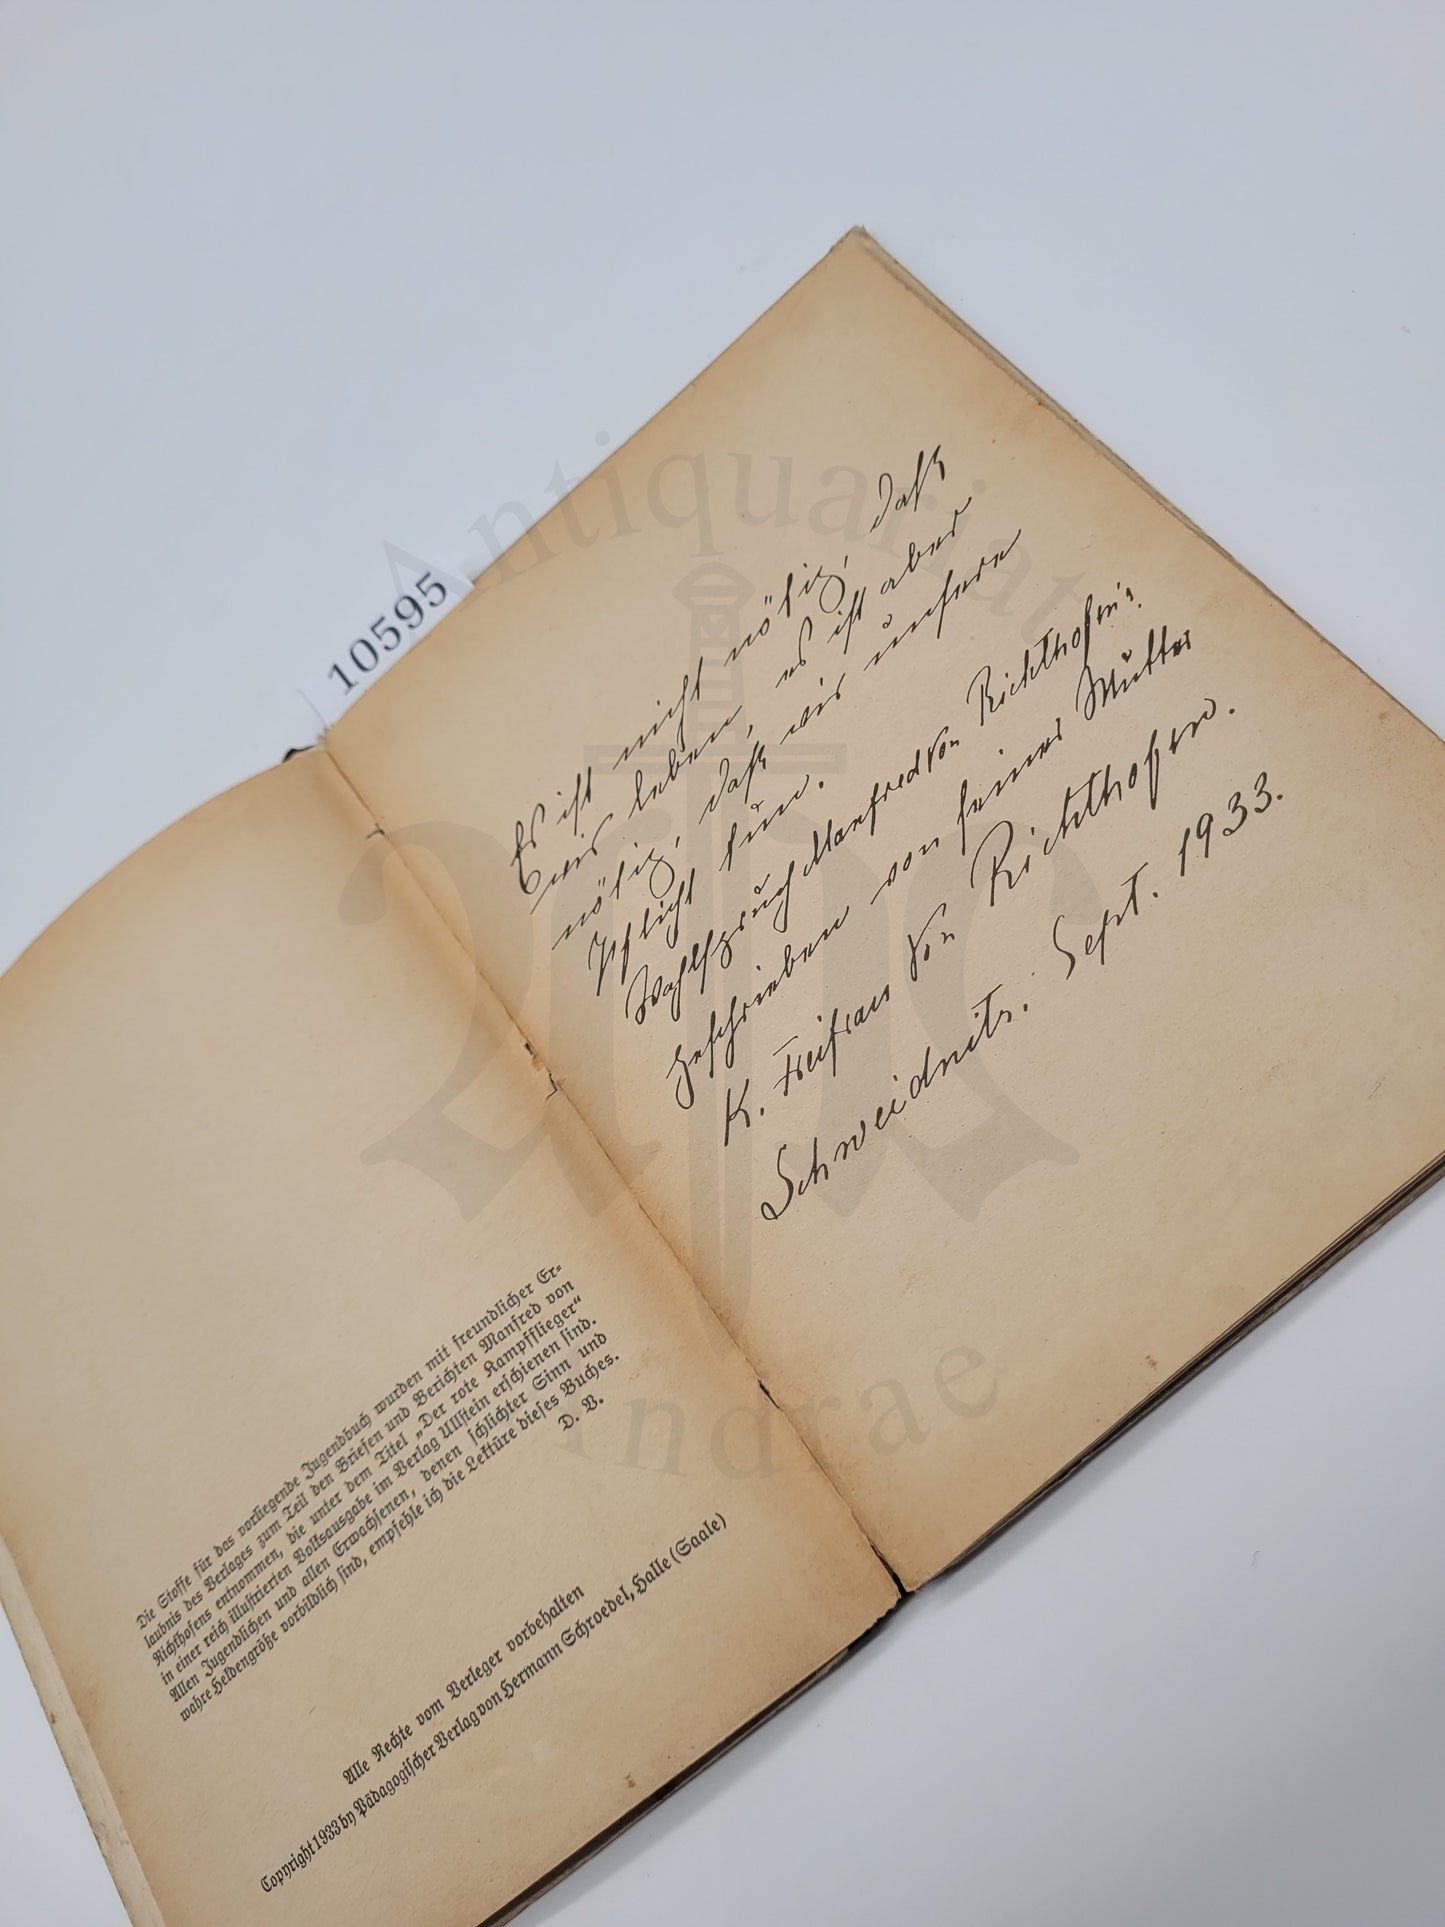 Die Stoffe für das vorliegende Jugendbuch wurden mit freundlicher Er-
laubnis des Verlages zum Teil den Briefen und Berichten Manfred von
Richthofens entnommen, die unter dem Titel „Der rote Kampfflieger“
in einer reich illustrierten Volksausgabe im Verlag Ullstein erschienen sind.
Allen Jugendlichen und allen Erwachsenen, denen schlichter Sinn und
wahre Heldengröße vorbildlich sind, empfehle ich die Lektüre dieses Buches.
D. V.
Alle Rechte vom Verleger vorbehalten
Copyright 1933 by Pädagogischer Verlag von Hermann Schroedel, Halle (Saale)
10595
Es ist nicht nötig, daß
wir leben, es ist aber
nötig, daß wir unsere
Pflicht tun.
Wahlspruch Manfred von Richthofen's
geschrieben von seiner Mutter
K. Freifrau von Richthofen.
Schweidnitz. Sept. 1933.
Antiquariat
Andrae